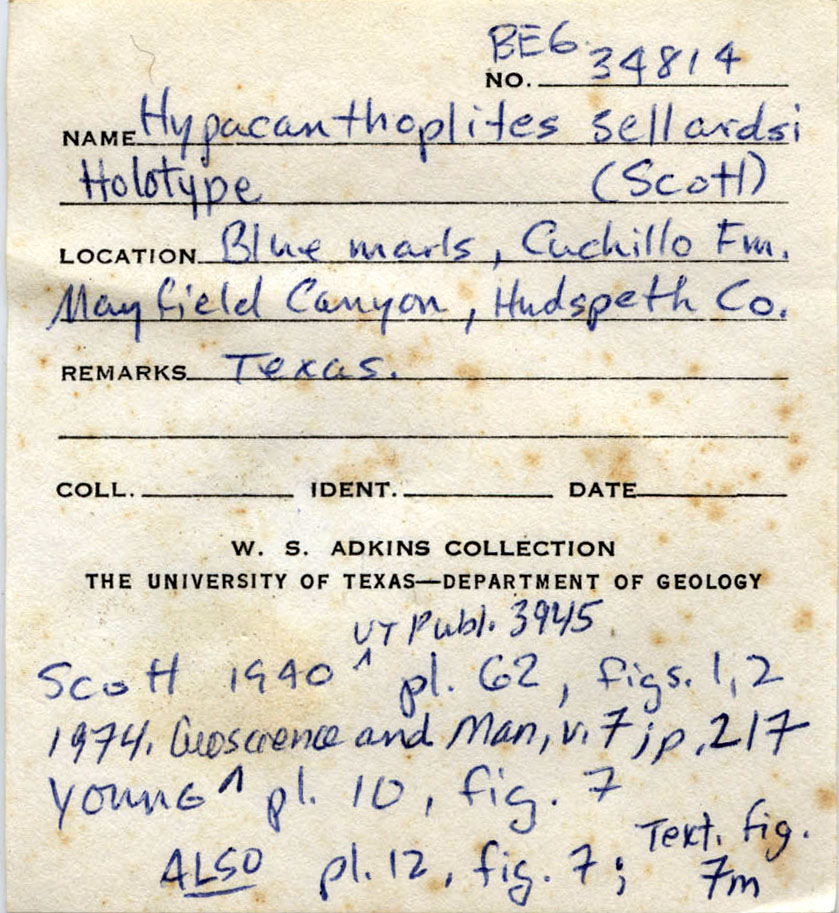 BEG
NO. 34814
NAME Hypacanthoplites sellardsi
Holotype (Scott)
LOCATION Blue marls, Cuchillo Fm.
Mayfield Canyon, Hudspeth Co.
REMARKS Texas.
COLL. IDENT. DATE
W. S. ADKINS COLLECTION
THE UNIVERSITY OF TEXAS—DEPARTMENT OF GEOLOGY
UT Publ. 3945
Scott 1940 ^ pl. 62, figs. 1,2
1974. Geoscience and Man, v. 7; p. 217
Young ^ pl. 10, fig. 7
ALSO pl. 12, fig. 7; Text. fig.
7m